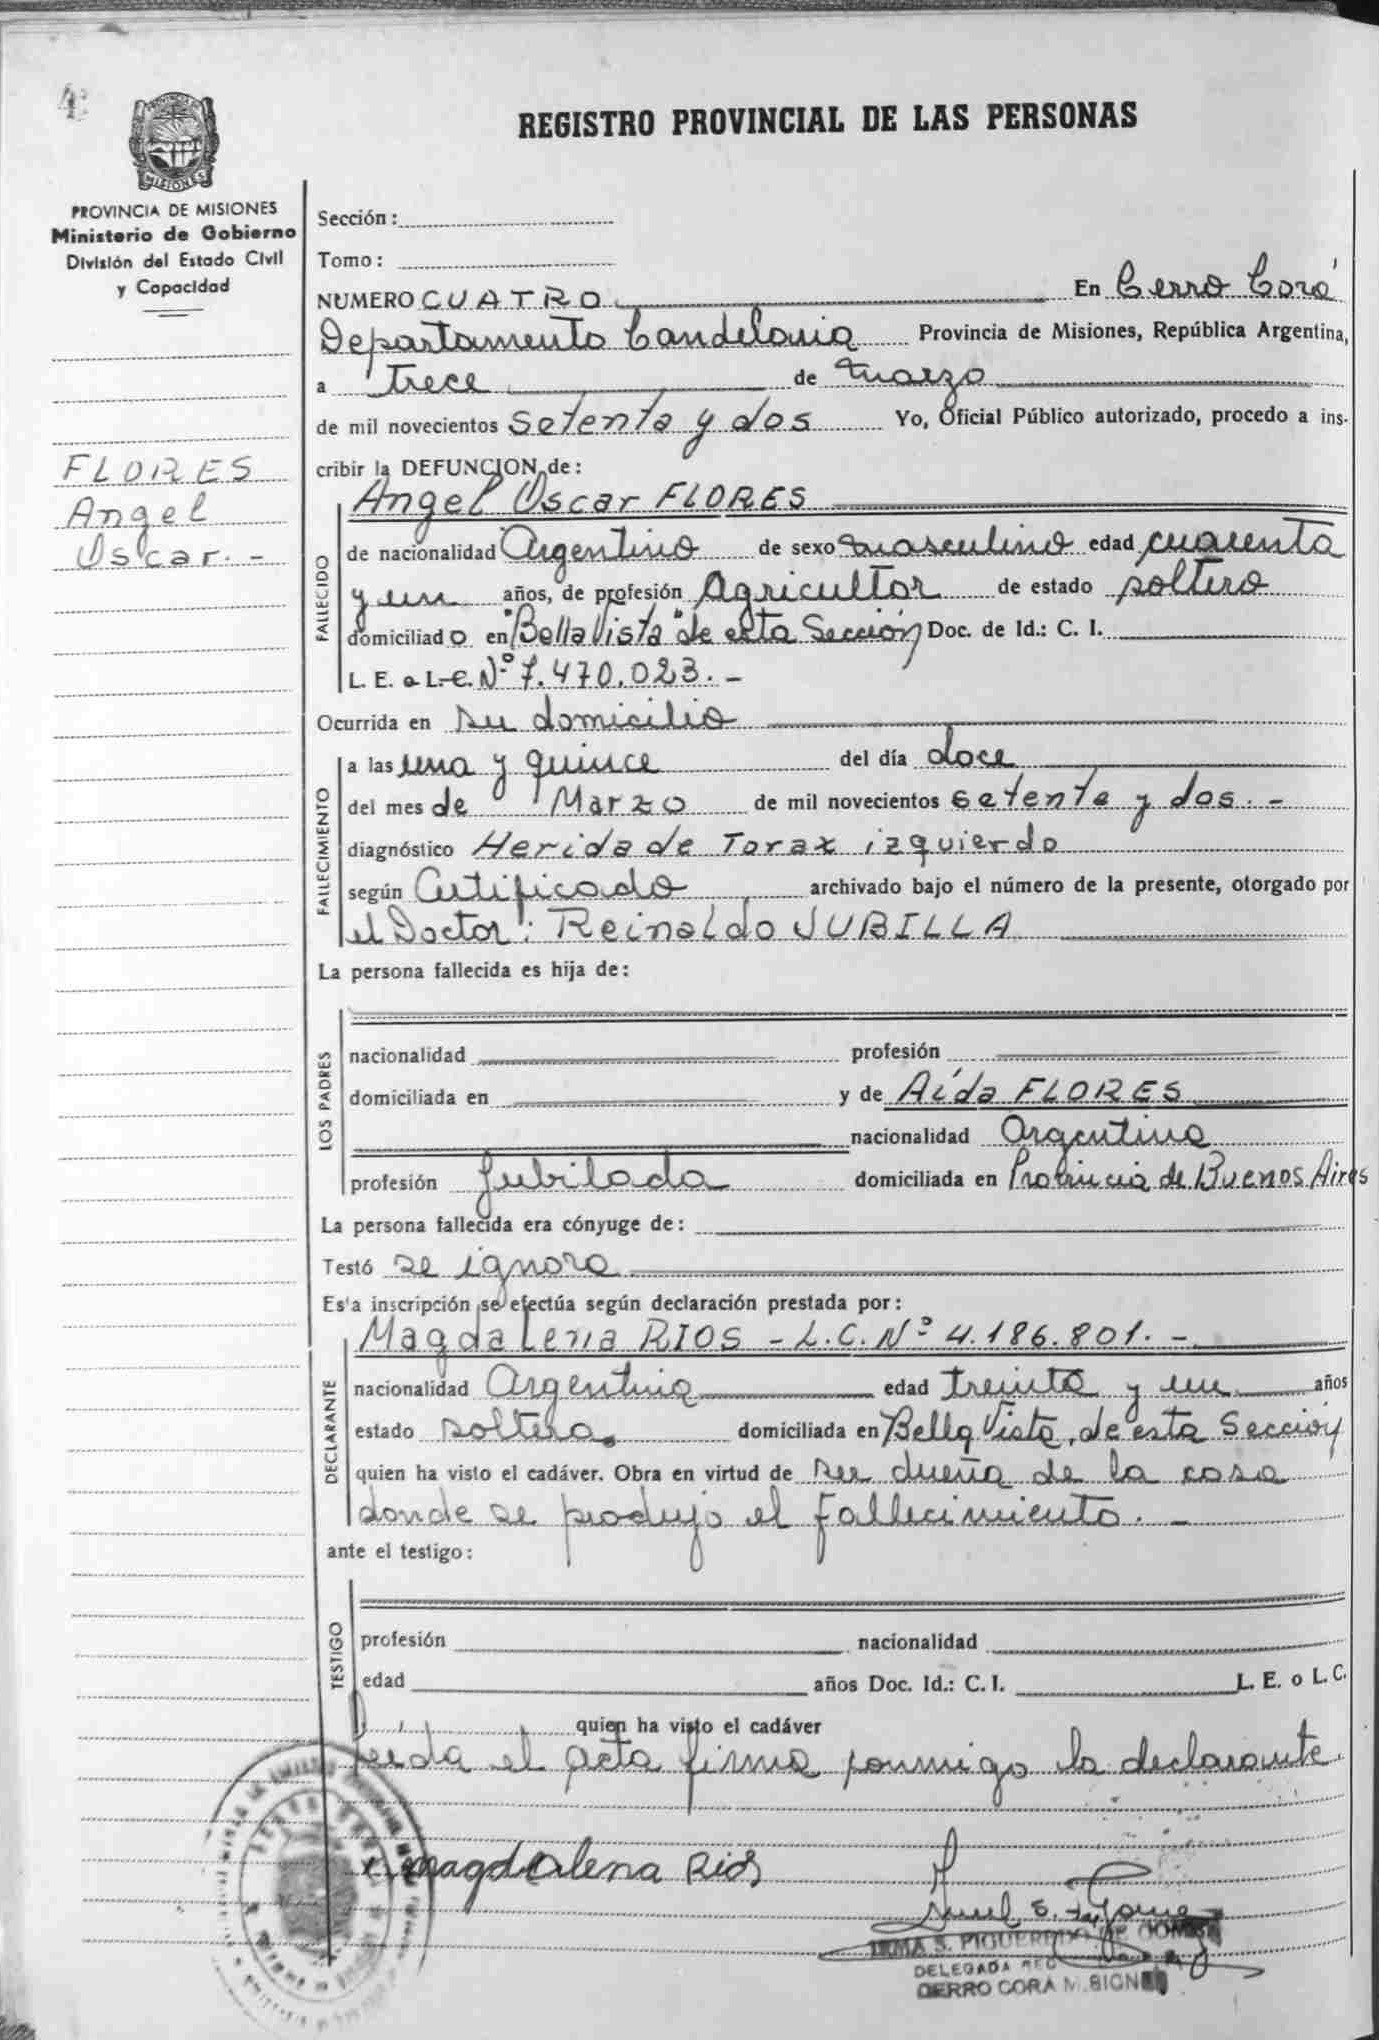 4
REGISTRO PROVINCIAL DE LAS PERSONAS
MISIONES
PROVINCIA DE MISIONES
Ministerio de Gobierno
División del Estado Civil
y Capacidad
FLORES
Angel
Oscar. -
Sección:
Tomo:
NUMERO CUATRO En Cerro Corá
Departamento Candelaria Provincia de Misiones, República Argentina,
a trece de marzo
de mil novecientos setenta y dos Yo, Oficial Público autorizado, procedo a ins-
cribir la DEFUNCION de:
Angel Oscar FLORES
FALLECIDO
de nacionalidad Argentino de sexo masculino edad cuarenta
y un años, de profesión Agricultor de estado soltero
domiciliado en "Bella Vista" de esta Sección Doc. de Id.: C. I.
L. E. o L. C. Nº 7.470.023. -
Ocurrida en su domicilio
FALLECIMIENTO
a las una y quince del día doce
del mes de Marzo de mil novecientos setenta y dos. -
diagnóstico Herida de Torax izquierdo
según Certificado archivado bajo el número de la presente, otorgado por
el Doctor: Reinaldo JUBILLA
La persona fallecida es hija de:
LOS PADRES
nacionalidad profesión
domiciliada en y de Aída FLORES
nacionalidad Argentina
profesión Jubilada domiciliada en Provincia de Buenos Aires
La persona fallecida era cónyuge de:
Testó se ignora
Esta inscripción se efectúa según declaración prestada por:
Magdalena RIOS - L.C. Nº 4.186.801. -
DECLARANTE
nacionalidad Argentina edad treinta y un años
estado soltera domiciliada en Bella Vista, de esta Sección
quien ha visto el cadáver. Obra en virtud de ser dueña de la casa
donde se produjo el fallecimiento. -
ante el testigo:
TESTIGO
profesión nacionalidad
edad años Doc. Id.: C. I. L. E. o L. C.
quien ha visto el cadáver
Leída el acta firma conmigo la declarante.
Magdalena Rios
IRMA S. FIGUEREDO DE GOMEZ
DELEGADA REG
CERRO CORA MISIONES